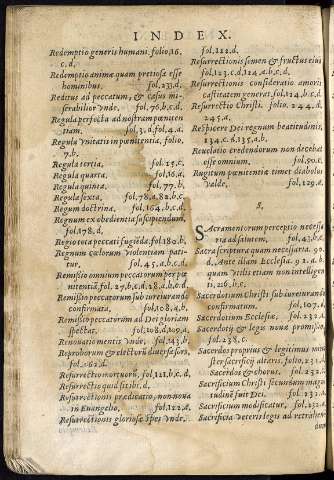 INDEX.
Redemptio generis humani. folio, 16.
c, d,
Redemptio animæ quam pretiosa esse
hominibus, fol, 23, d,
Reditus ad peccatum, & casus mi-
serabilior vnde, fol, 76, b, c, d,
Regula perfecta ad nostram pœniten
tiam, fol, 3, d, fol, 4, a.
Regula vnitatis in pœnitentia, folio,
7, b.
Regula tertia, fol, 15, c.
Regula quarta, fol, 16, a,
Regula quinta, fol, 77, b,
Regula sexta, fol, 78, a, 82, b, c.
Regum doctrina, fol, 164, b, c, d,
Regnum ex obedientia suscipiendum,
fol, 178, d,
Regio tota peccati fugiẽda, fol, 180, b,
Regnum cælorum violentiam pati-
tur, fol, 45, a, b, c, d,
Remissio omnium peccatorum per pœ
nitentiã, fol, 27, b, c, d, 28, b, c, d,
Remissio peccatorum sub iureiurando
confirmata, fol, 108, a, b,
Remissio peccatorum ad Dei gloriam
spectat, fol, 108, d, 109, a,
Renouatio mentis vnde, fol, 143, b,
Reproborum & electorũ diuersæ sors,
fol, 262, d,
Resurrectio mortuorũ, fol, 121, b, c, d,
Resurrectio quid sit ibi. d,
Resurrectionis prædicatio, non noua
in Euangelio, fol, 122, a,
Resurrectionis gloriosæ spes vnde,
fol, 122, d.
Resurrectionis semen & fructus eius
fol, 123, c, d, 124, a, b, c, d,
Resurrectionis consideratio amoris
castitatem generat, fol, 124, b, c, d,
Resurrectio Christi. folio, 244, d,
245, a,
Respicere Dei regnum beatitudinis,
134, c, d, 135, a, b,
Reuelatio credendorum non debebat
esse omnium, fol, 90, c,
Rugitum pœnitentiæ timet diabolus
valde, fol, 129, a,
S.
Sacramentorum perceptio necessa
ria ad salutem, fol, 43, a, b,
Sacra scriptura quam necessaria. 92.
d, Ante illam Ecclesia. 92. a. b.
quam vtilis etiam non intelligen
ti, 216, b, c,
Sacerdotium Christi sub iureiurando
confirmatum, fol, 107, c,
Sacerdotium Ecclesiæ, fol, 232, a,
Sacerdotij & legis noua promissio,
fol, 238, c.
Sacerdos proprius & legitimus mini
ster sacrificij altaris, folio, 231, a,
Sacerdos & chorus, fol, 232, d,
Sacrificium Christi secundum magni
tudinẽ suit Dei, fol, 231, a,
Sacrificium modificatur, fol, 232, a,
Sacrificia veteris legis ad retrahen-
dum